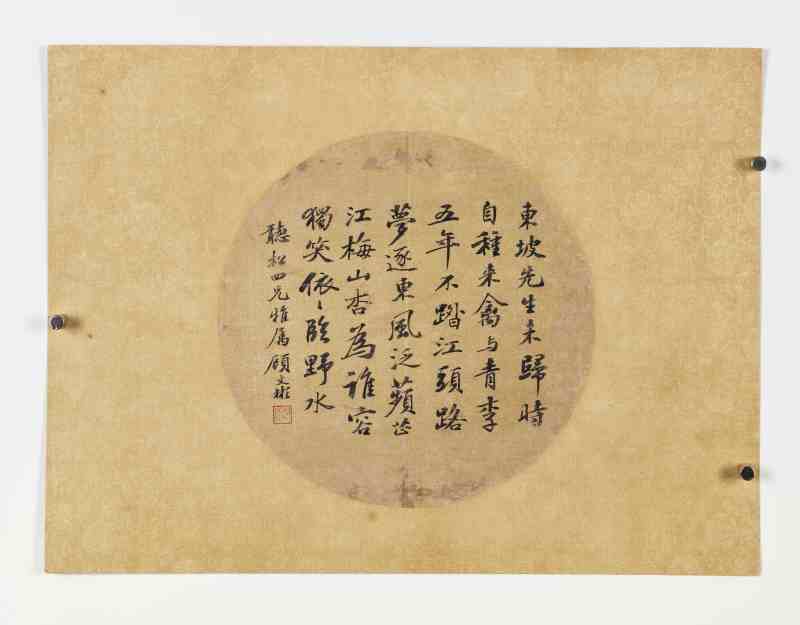 東坡先生未歸時
自種來禽與青李
五年不踏江頭路
夢逐東風泛蘋芷
江梅山杏為誰容
獨笑依〻臨野水
聽松四兄雅屬顧文彬